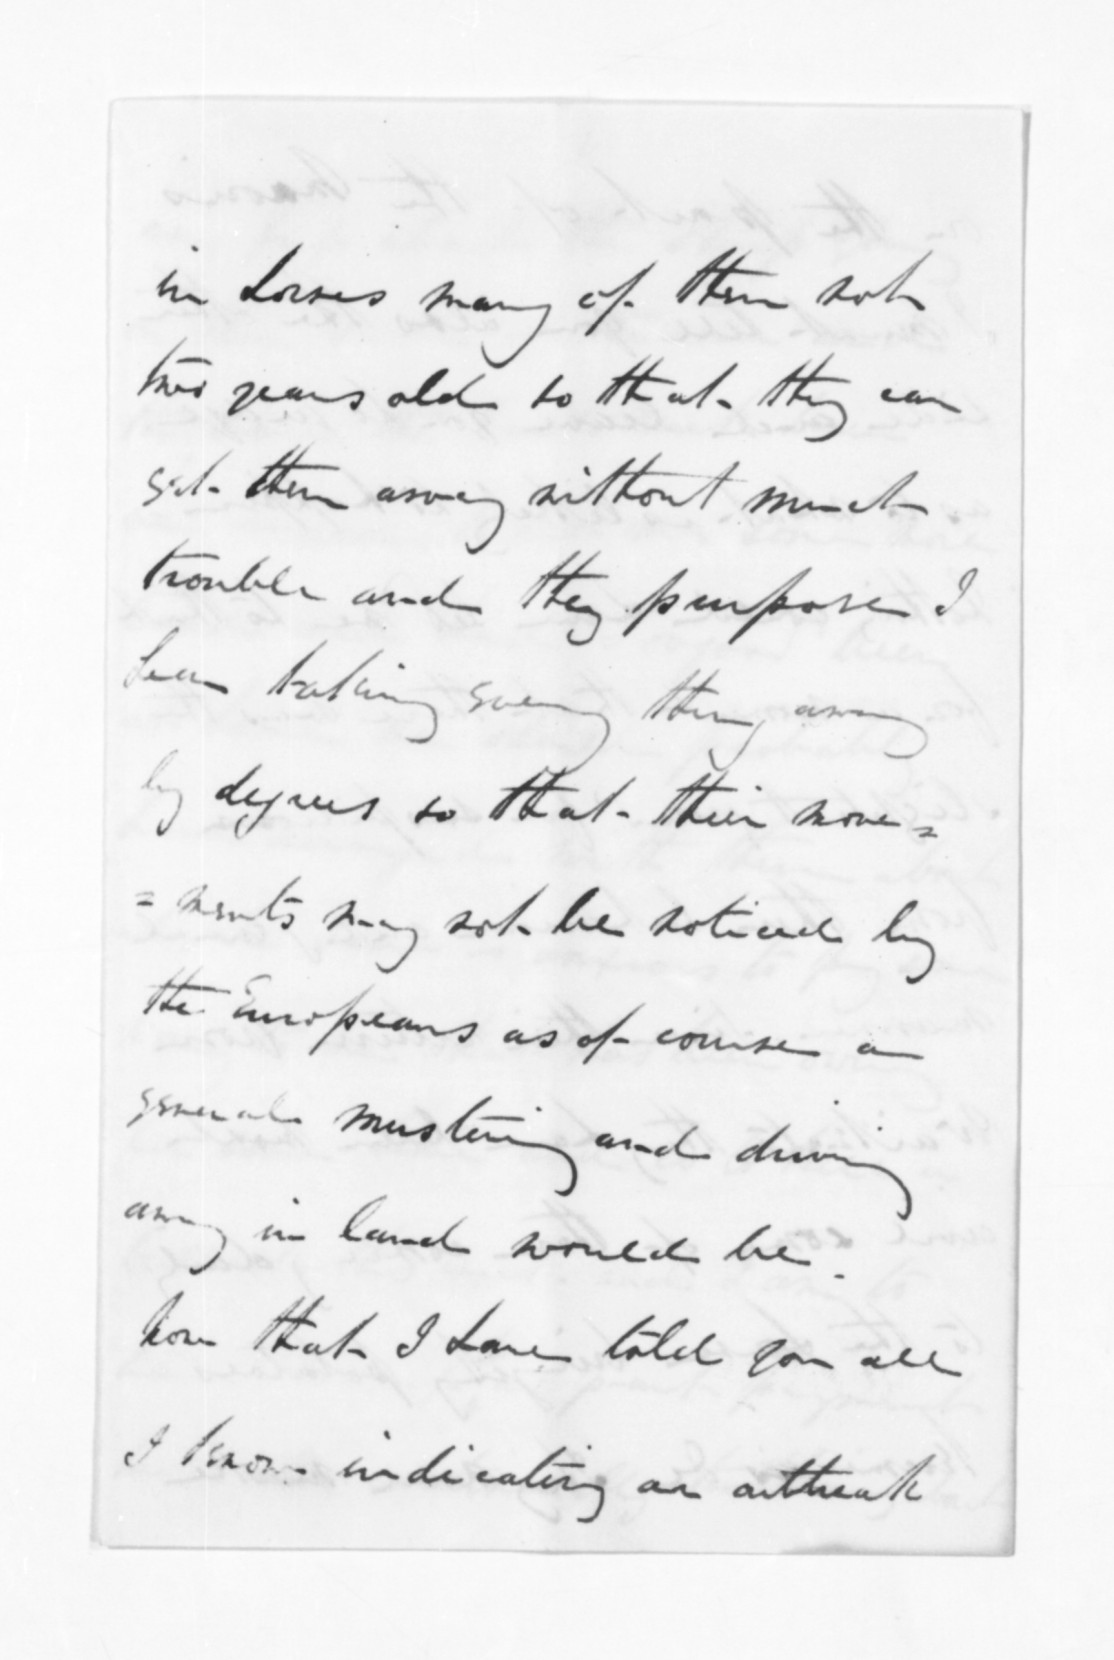 in horses many of them not
two years old so that they can
get them away without much
trouble and they purpose I
hear taking them away
by degrees so that their move=
=ments may not be noticed by
the Europeans as of course a
general mustering and driving
away in land would be.
Now that I have told you all
I know indicating an outbreak